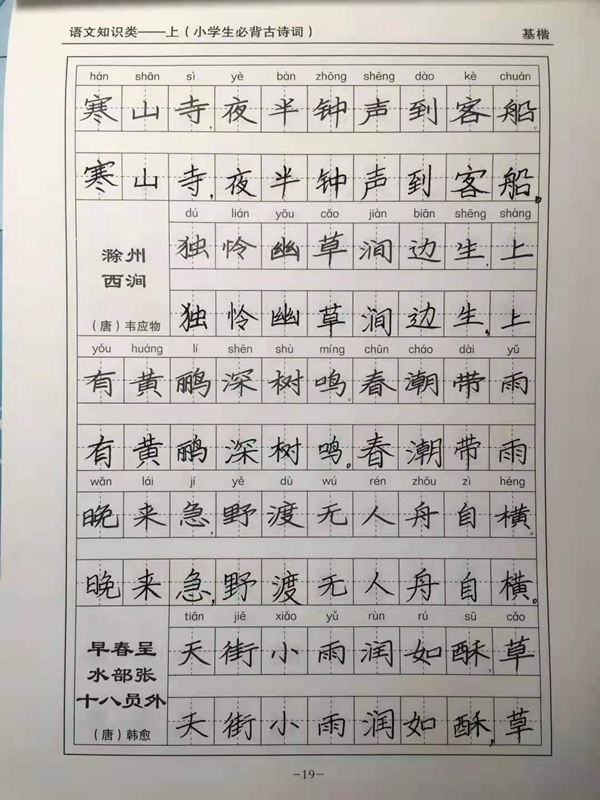 语文知识类——上（小学生必背古诗词）
基楷
hán shān sì yè bàn zhōng shēng dào kè chuán
寒山寺,夜半钟声到客船。
寒山寺,夜半钟声到客船。
dú lián yōu cǎo jiàn biān shēng shàng
滁州
西涧
（唐）韦应物
独怜幽草涧边生,上
独怜幽草涧边生,上
yǒu huáng lí shēn shù míng chūn cháo dài yǔ
有黄鹂深树鸣。春潮带雨
有黄鹂深树鸣。春潮带雨
wǎn lái jí yě dù wú rén zhōu zì héng
晚来急,野渡无人舟自横。
晚来急,野渡无人舟自横。
tiān jiē xiǎo yǔ rùn rú sū cǎo
早春呈
水部张
十八员外
（唐）韩愈
天街小雨润如酥,草
天街小雨润如酥,草
-19-